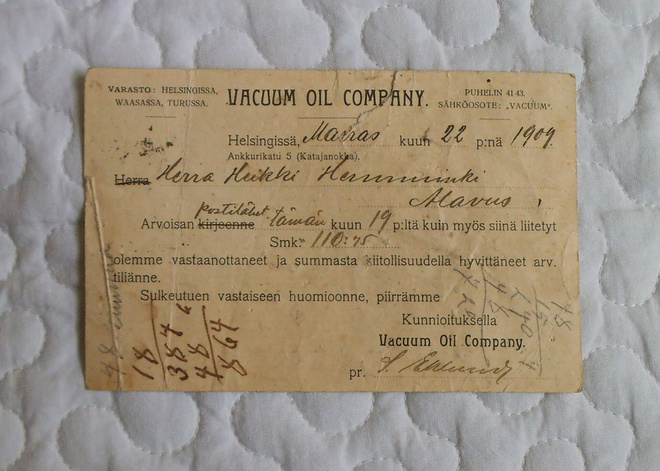 VARASTO: HELSINGISSA,
WAASASSA, TURUSSA.
VACUUM OIL COMPANY.
PUHELIN 41 43.
SÄHKÖOSOTE: „VACUUM".
Helsingissä, Marras kuun 22 p:nä 1909.
Ankkurikatu 5 (Katajanokka).
Herra Herra Heikki Hemminki
Alavus,
postilähet.
Arvoisan kirjeenne tämän kuun 19 p:ltä kuin myös siinä liitetyt
Smk: 110:45
olemme vastaanottaneet ja summasta kiitollisuudella hyvittäneet arv.
tiliänne.
Sulkeutuen vastaiseen huomioonne, piirrämme
Kunnioituksella
Vacuum Oil Company.
pr. S. Eklund
18
387
48
864